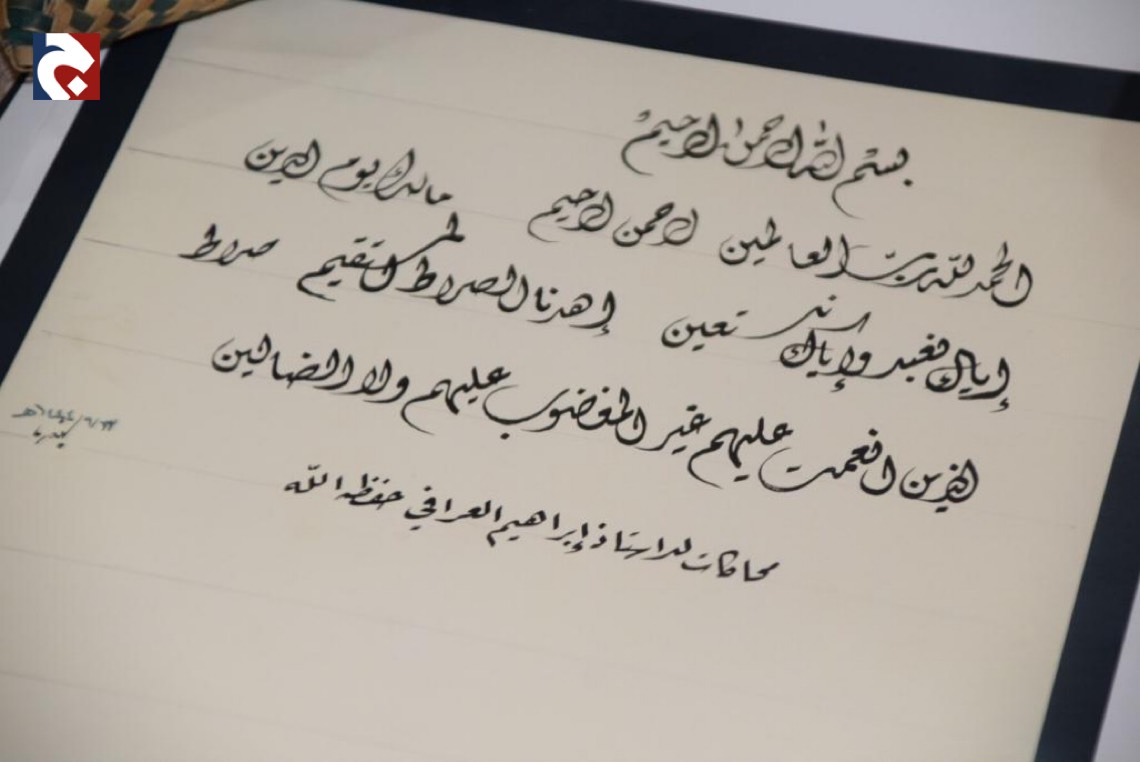 بسم الله الرحمن الرحيم
الحمد لله رب العالمين الرحمن الرحيم مالك يوم الدين
إياك نعبد وإياك نستعين إهدنا الصراط المستقيم صراط
الذين انعمت عليهم غير المغضوب عليهم ولا الضالين
محاكات للاستاذ إبراهيم العرافي حفظه الله